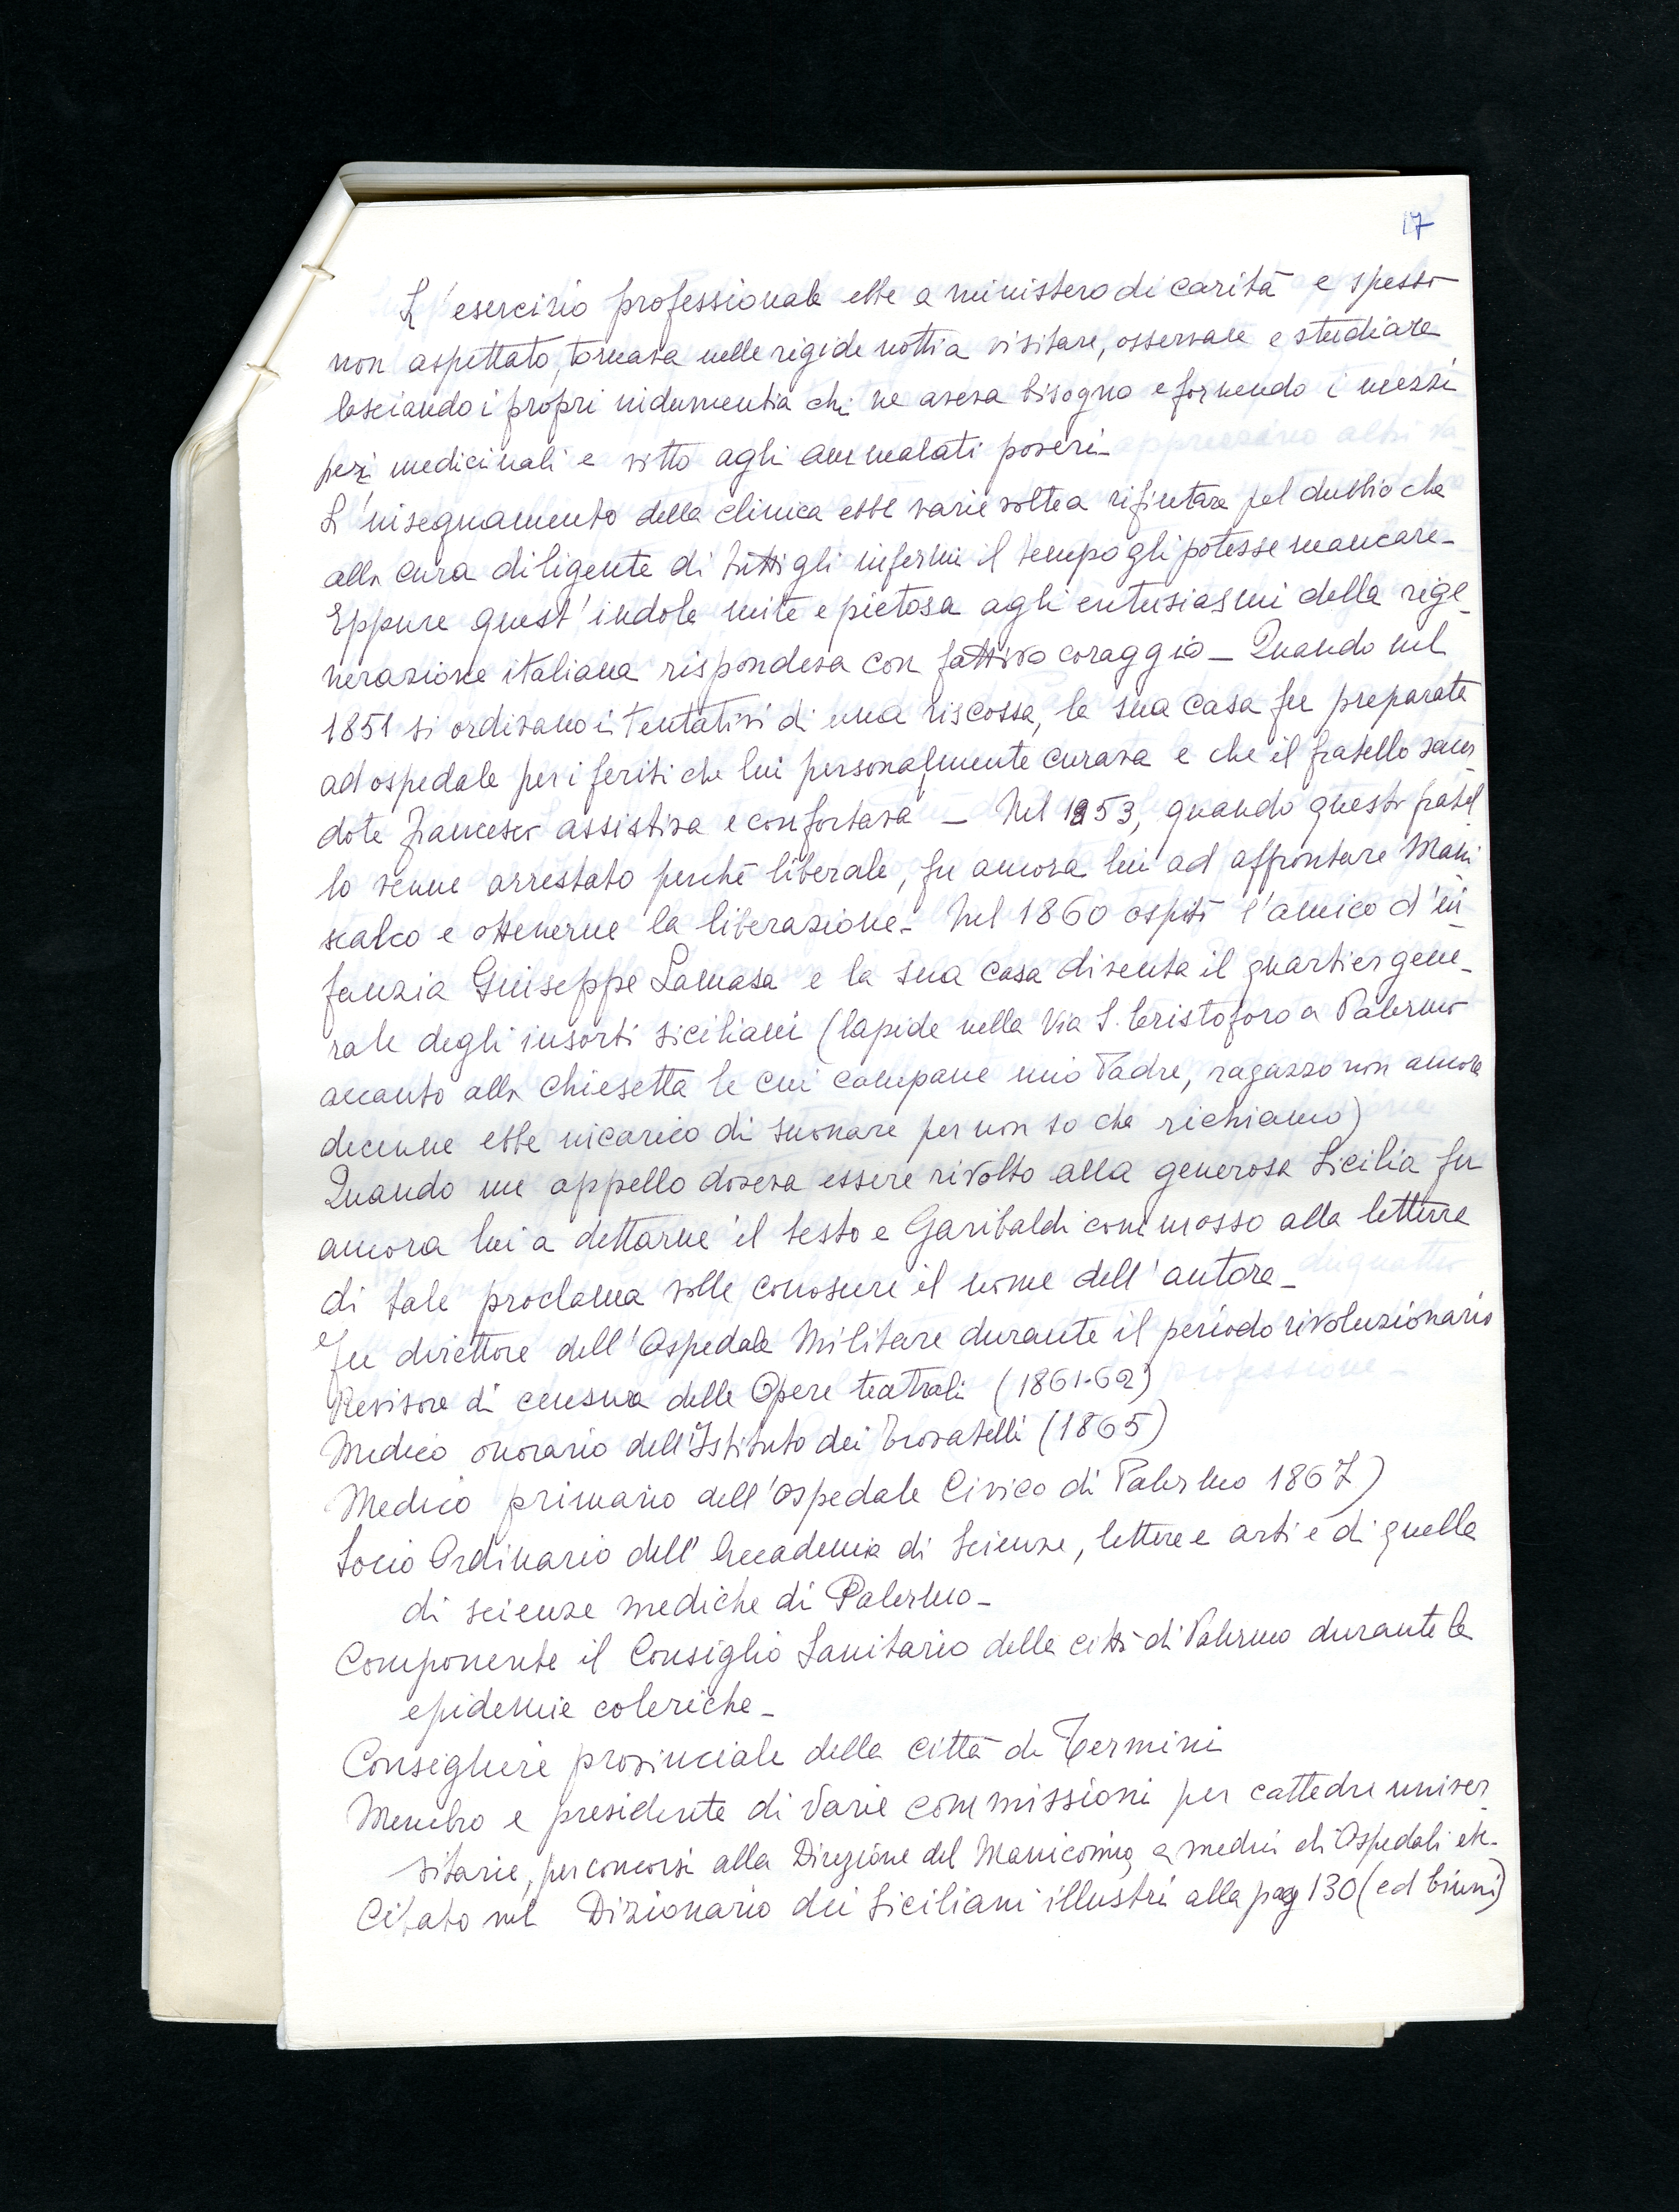 17
L'esercizio professionale ebbe a ministero di carità e spesso
non aspettato, tornava nelle rigide notti a visitare, osservare e studiare
lasciando i propri indumenti a chi ne aveva bisogno e fornendo i mezzi
medicinali e vitto agli ammalati poveri_
L'insegnamento della clinica ebbe varie volte a rifiutare pel dubbio che
alla cura diligente di tutti gli infermi il tempo gli potesse mancare_
Eppure quest'indole mite e pietosa agli entusiasmi della rige_
nerazione italiana rispondeva con fattivo coraggio_ Quando nel
1851 si ordivano i tentativi di una riscossa, la sua casa fu preparata
ad ospedale per i feriti che lui personalmente curava e che il fratello sacer_
dote Francesco assistiva e confortava _ Nel 1853, quando questo fratel_
lo venne arrestato perché liberale, fu ancora lui ad affrontare Mani_
scalco e ottenerne la liberazione_ Nel 1860 ospitò l'amico d'in_
fanzia Giuseppe Lamasa e la sua casa diventa il quartier gene_
rale degli insorti siciliani (lapide nella Via S. Cristoforo a Palermo
accanto alla chiesetta le cui campane mio Padre, ragazzo non ancora
decenne ebbe incarico di suonare per non so che richiamo)
Quando un appello doveva essere rivolto alla generosa Sicilia fu
ancora lui a dettarne il testo e Garibaldi commosso alla lettura
di tale proclama volle conoscere il nome dell'autore_
Fu direttore dell'Ospedale Militare durante il periodo rivoluzionario
Revisore di censura delle Opere teatrali (1861-62)
Medico onorario dell'Istituto dei Trovatelli (1865)
Medico primario dell'ospedale Civico di Palermo 1867)
Socio Ordinario dell'Accademia di Scienze, lettere e arti e di quella
di scienze mediche di Palermo_
Componente il Consiglio Sanitario della città di Palermo durante le
epidemie coleriche_
Consigliere provinciale della città di Termini
Membro e presidente di varie commissioni per cattedre univer_
sitarie, per concorsi alla Direzione del Manicomio, a medici di Ospedali etc.
Citato nel Dizionario dei Siciliani illustri alla pag 130 (ed Ciuni)